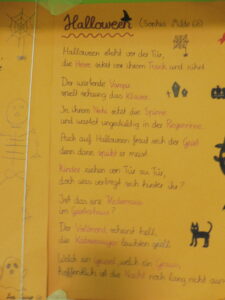 Halloween
Halloween steht vor der Tür,
die Hexe sitzt vor ihrem Trank und rührt.
Der wartende Vampir
spielt schaurig das Klavier.
In ihrem Netz sitzt die Spinne,
und wartet ungeduldig in der Regenrinne.
Auch auf Halloween freut sich der Geist
denn dann spukt er meist.
Kinder ziehen von Tür zu Tür,
doch was verbirgt sich hinter ihr?
Ist das eine Fledermaus
im Geisterhaus?
Der Vollmond scheint hell,
die Katzenaugen leuchten grell.
Welch ein Graus,
hoffentlich ist die Nacht noch lang nicht aus